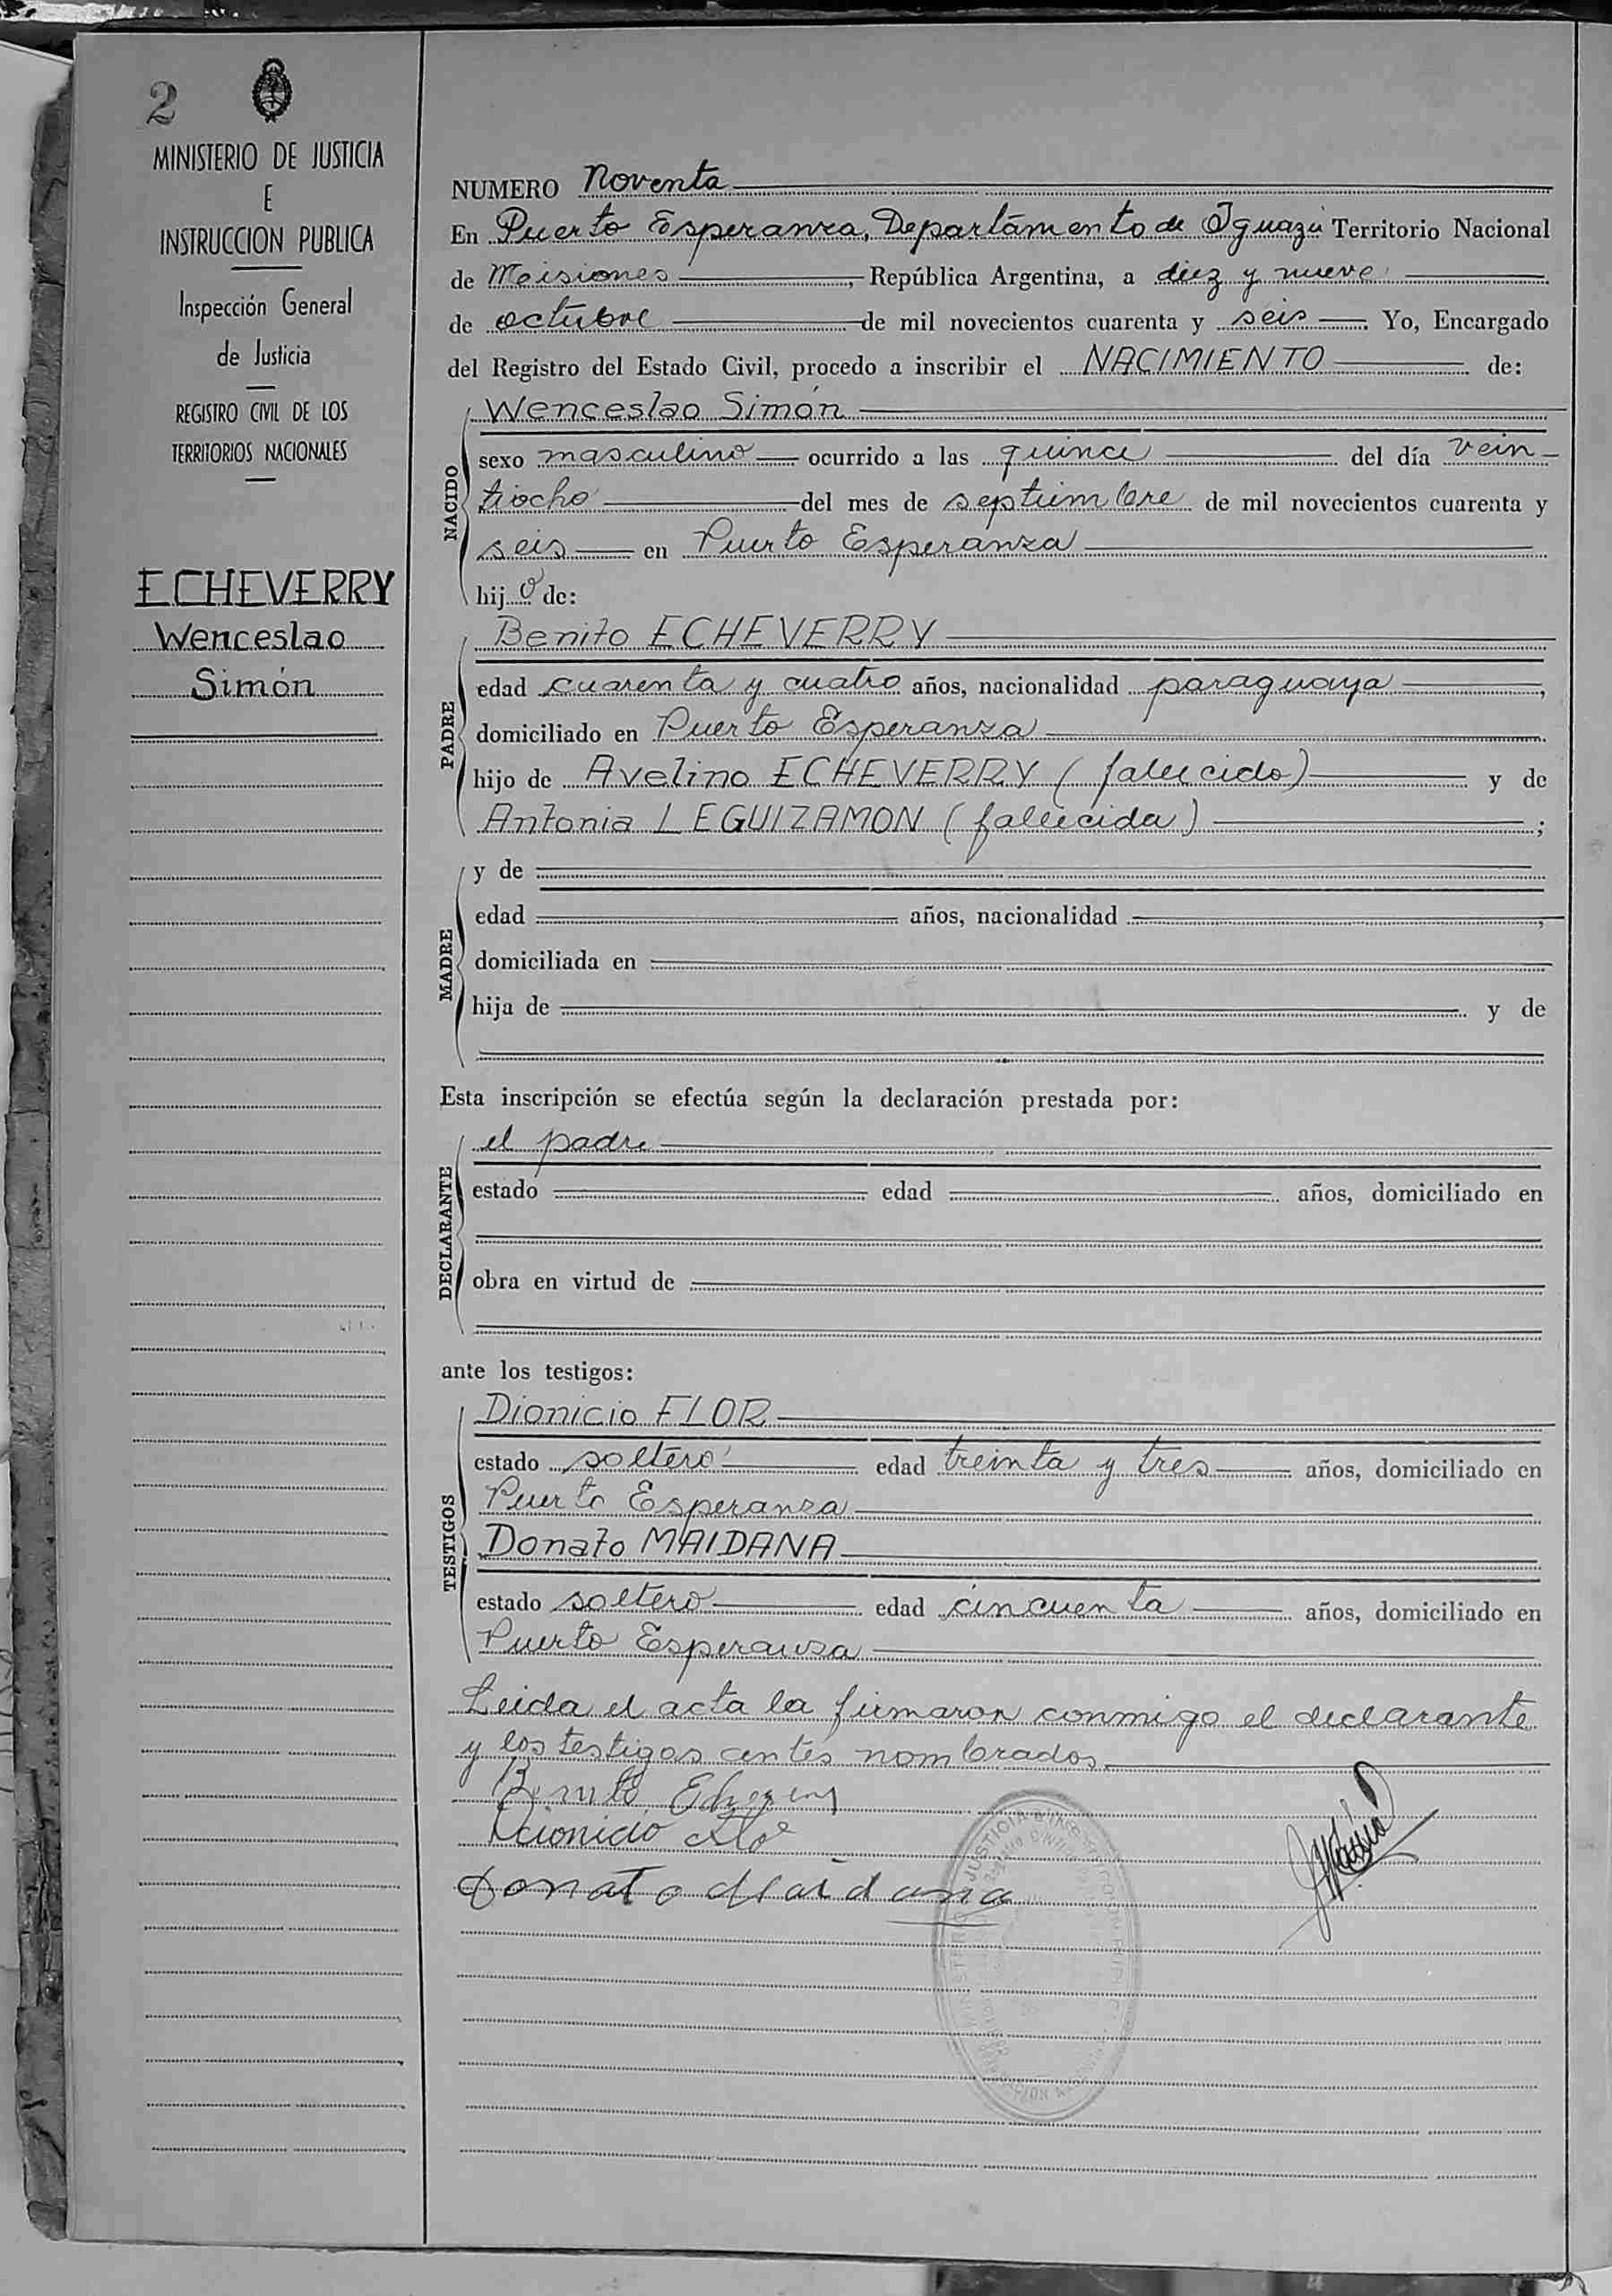 2
MINISTERIO DE JUSTICIA
E
INSTRUCCION PUBLICA
Inspección General
de Justicia
REGISTRO CIVIL DE LOS
TERRITORIOS NACIONALES
ECHEVERRY
Wenceslao
Simón
NUMERO Noventa
En Puerto Esperanza, Departamento de Iguazú Territorio Nacional
de Misiones, República Argentina, a diez y nueve
de octubre de mil novecientos cuarenta y seis. Yo, Encargado
del Registro del Estado Civil, procedo a inscribir el NACIMIENTO de:
NACIDO
Wenceslao Simón
sexo masculino ocurrido a las quince del día vein-
tiocho del mes de septiembre de mil novecientos cuarenta y
seis en Puerto Esperanza
hijo de:
PADRE
Benito ECHEVERRY
edad cuarenta y cuatro años, nacionalidad paraguaya,
domiciliado en Puerto Esperanza
hijo de Avelino ECHEVERRY (fallecido) y de
Antonia LEGUIZAMON (fallecida);
MADRE
y de
edad años, nacionalidad,
domiciliada en
hija de y de
Esta inscripción se efectúa según la declaración prestada por:
DECLARANTE
el padre
estado edad años, domiciliado en
obra en virtud de
ante los testigos:
TESTIGOS
Dionicio FLOR
estado soltero edad treinta y tres años, domiciliado en
Puerto Esperanza
Donato MAIDANA
estado soltero edad cincuenta años, domiciliado en
Puerto Esperanza
Leida el acta la firmaron conmigo el declarante
y los testigos antes nombrados.
Donato Maidana